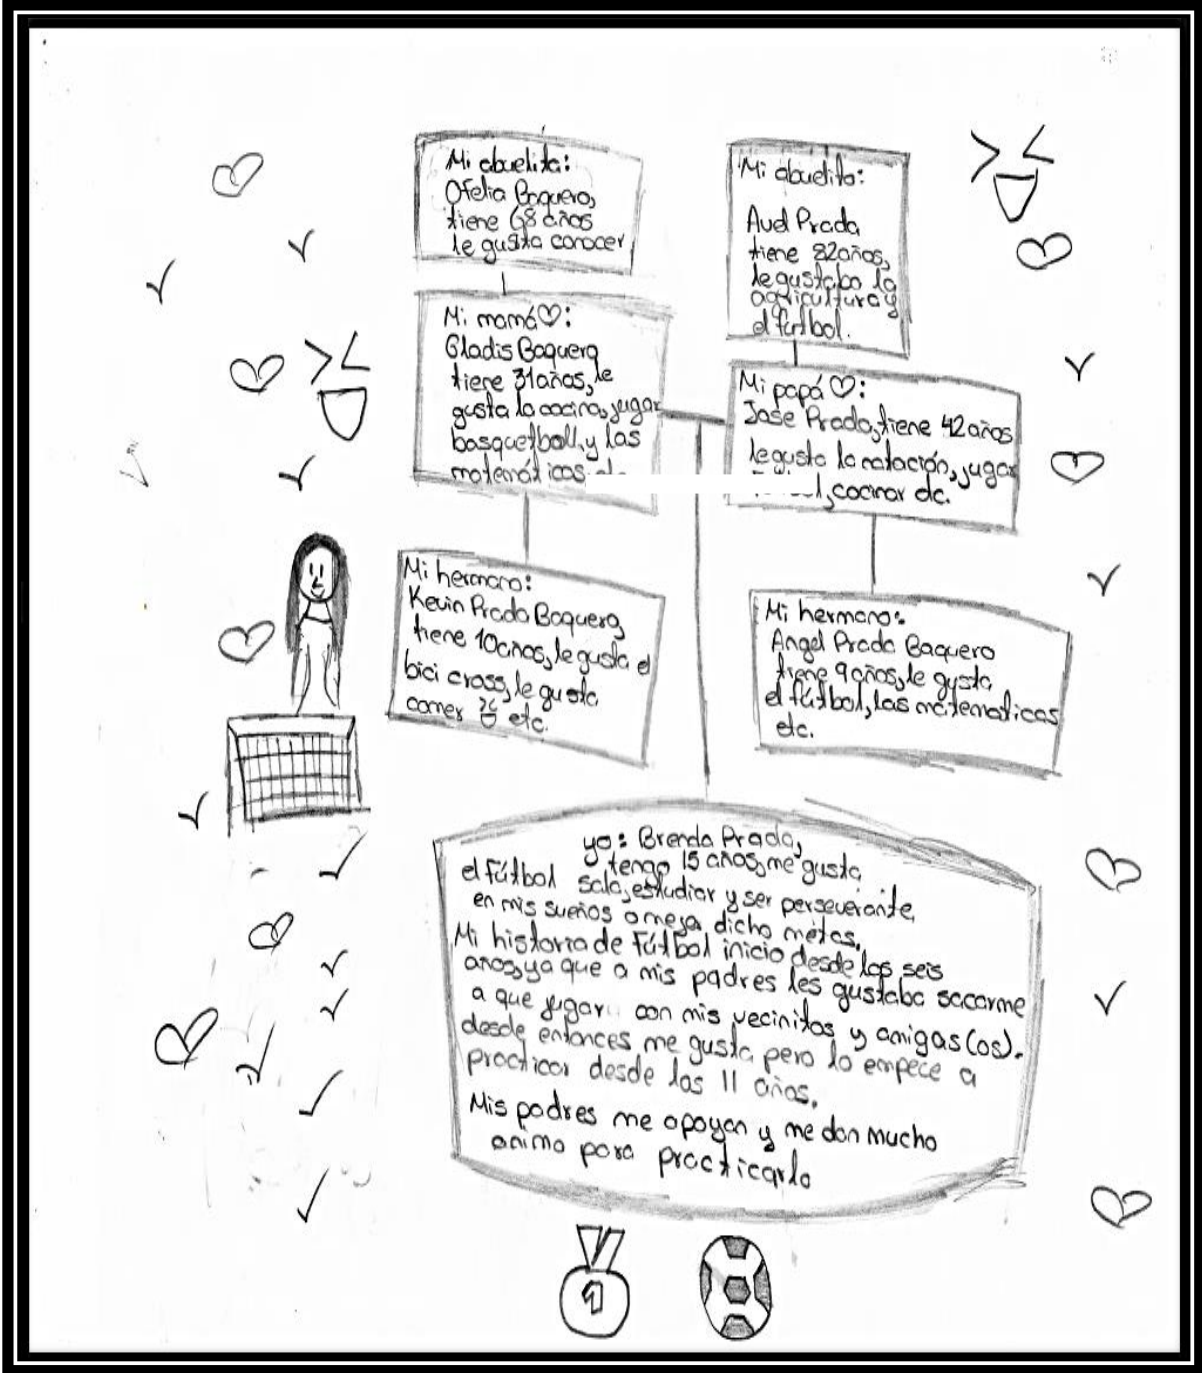 Mi abuelita:
Ofelia Baquero,
tiene 68 años
le gusta conocer
Mi abuelito:
Auel Prada
tiene 82años,
le gustaba la
agricultura y
el futbol.
Mi mamá♡:
Gladis Baquero
tiene 31años, le
gusta la cocina, jugar
basquetball, y las
matemáticas
Mi papá ♡:
Jose Prada, tiene 42 años
le gusta la natación, jugar
cocinar etc.
Mi hermano:
Kevin Prada Baquero,
tiene 10años, le gusta el
bici cross, le gusta
comer etc.
Mi hermano:
Angel Prada Baquero
tiene 9 años, le gusta
el fútbol, las matematicas
etc.
yo: Brenda Prada,
tengo 15 años, me gusta
el fútbol sala, estudiar y ser perseverante
en mis sueños o mejor dicho metas.
Mi historia de Fútbol inicio desde los seis
años, ya que a mis padres les gustaba sacarme
a que jugar con mis vecinitos y amigas(os).
desde entonces me gusta pero lo empece a
practicar desde los 11 años.
Mis padres me apoyan y me dan mucho
animo para practicarlo
1